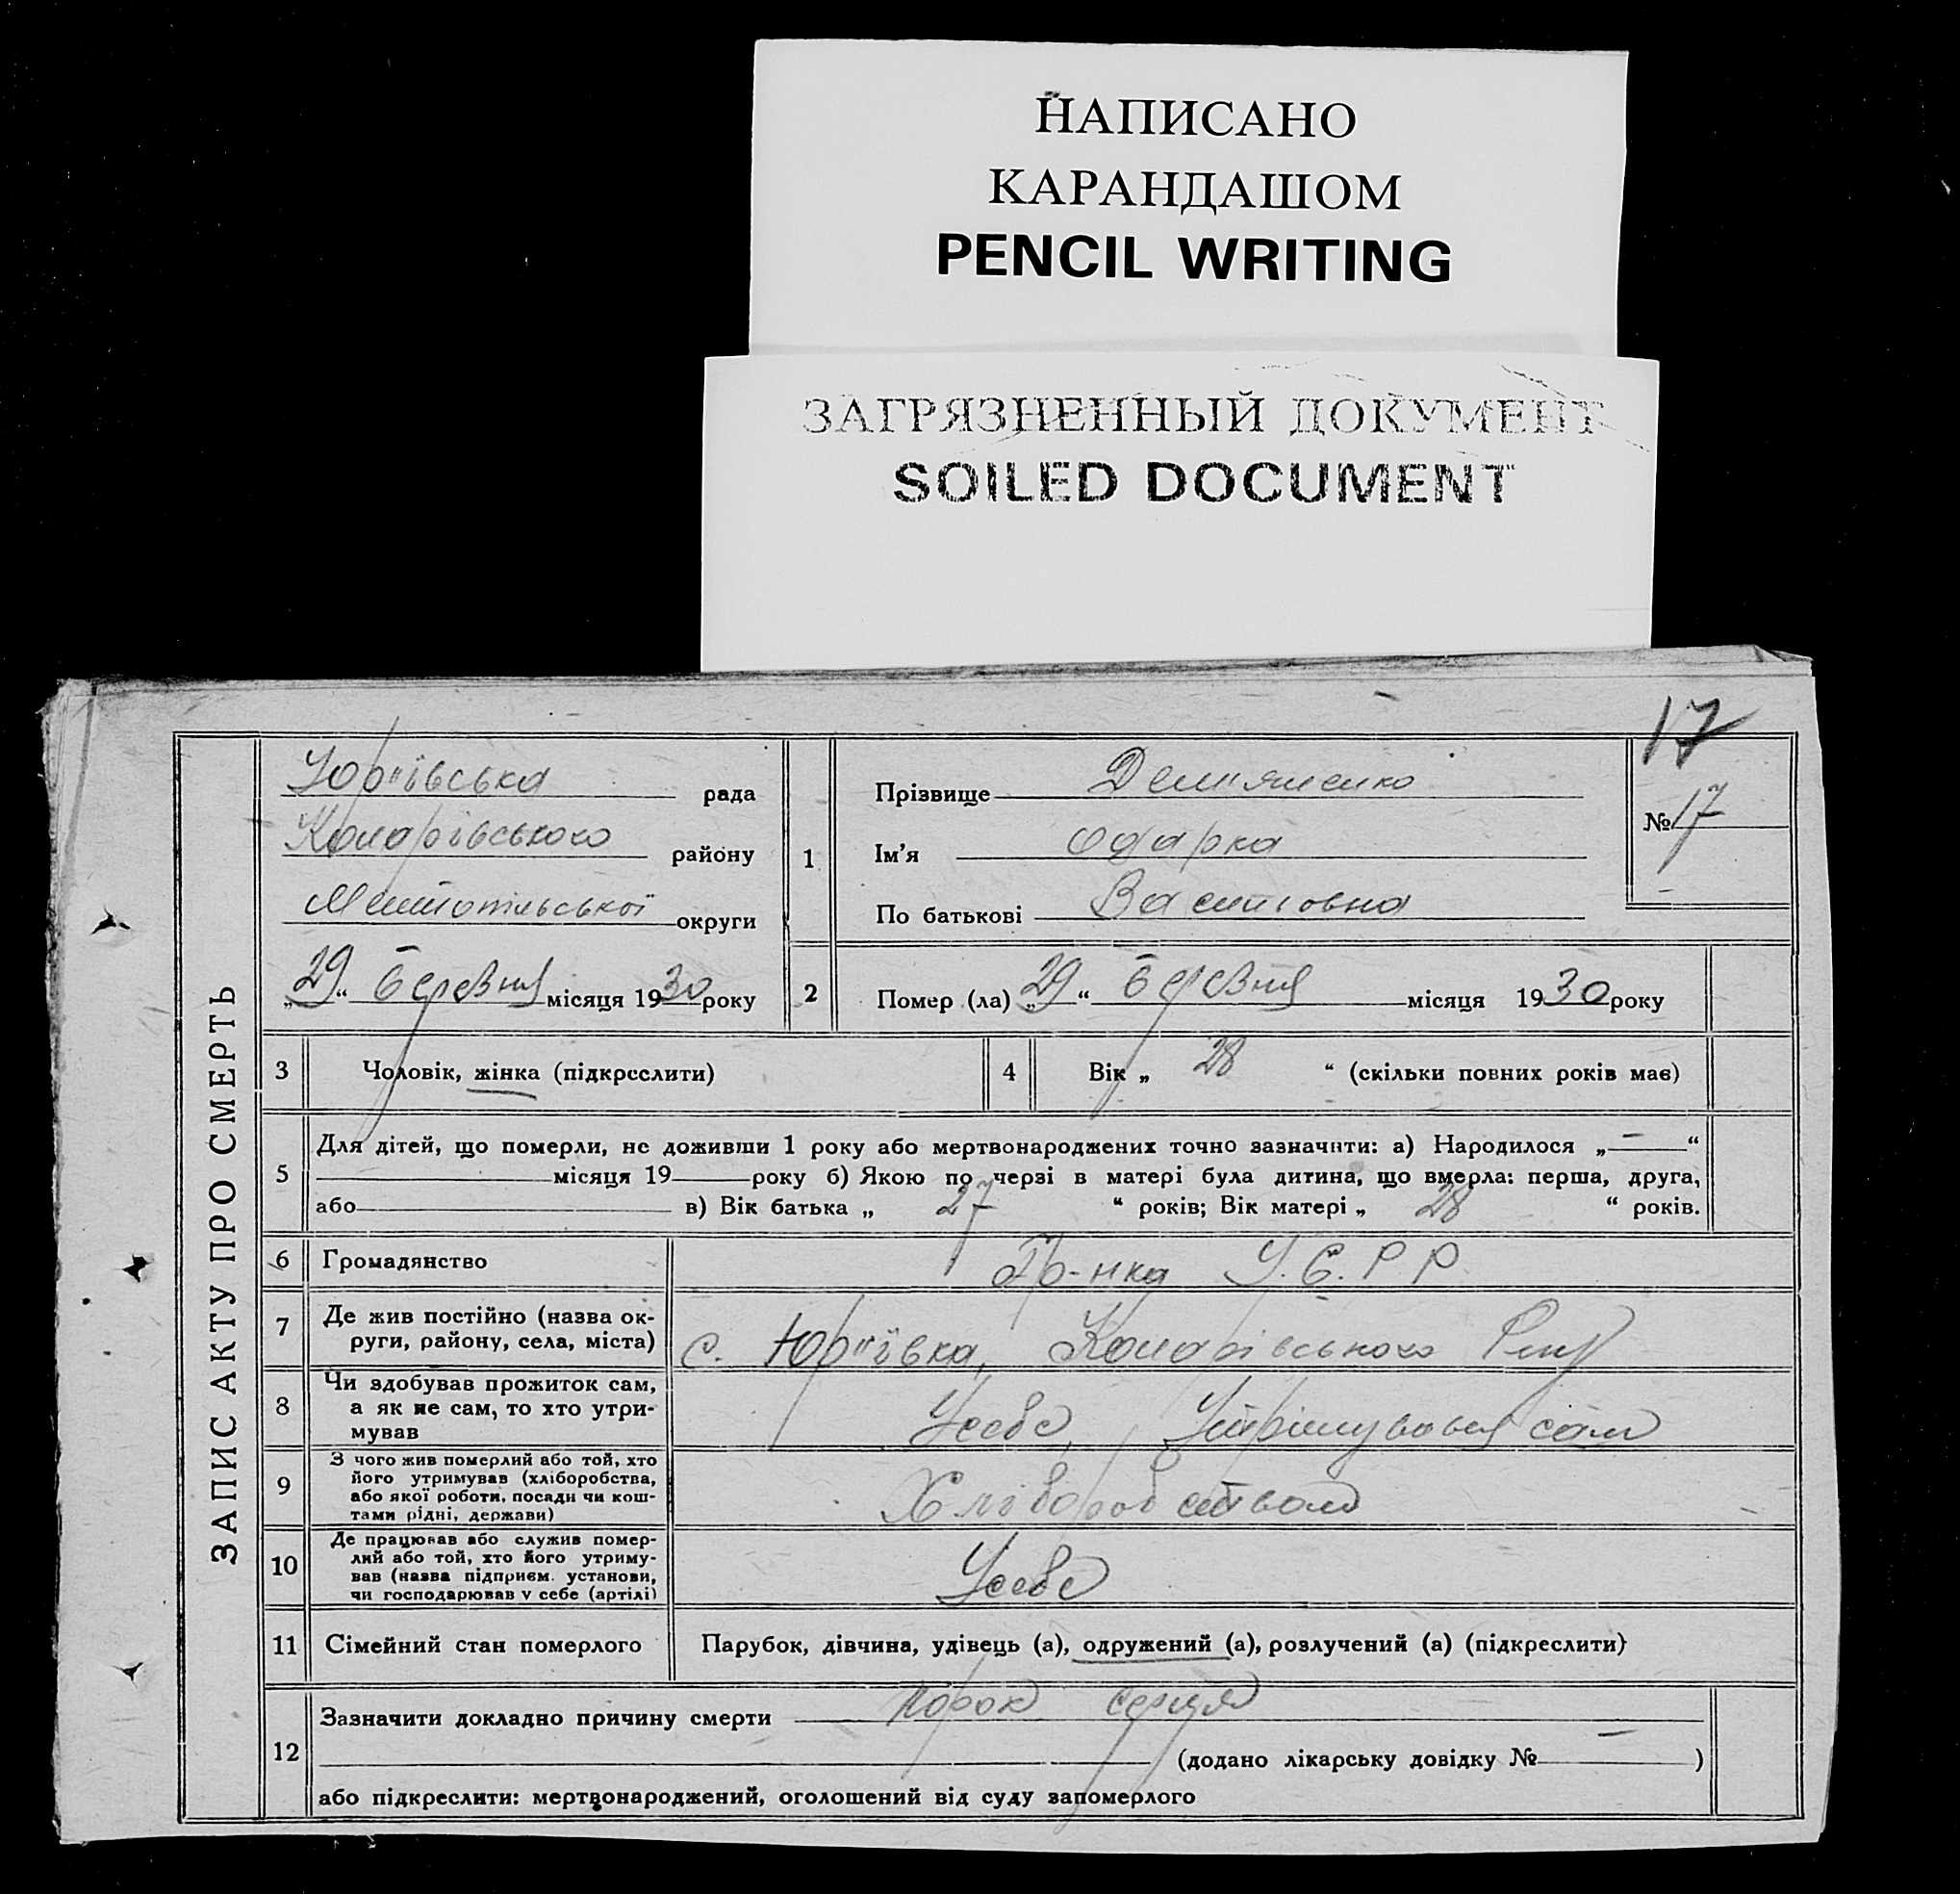 НАПИСАНО
КАРАНДАШОМ
PENCIL WRITING
ЗАГРЯЗНЕННЫЙ ДОКУМЕНТ
SOILED DOCUMENT
17
ЗАПИС АКТУ ПРО СМЕРТЬ
Юр'ївська рада
району
округи
„29“ березня місяця 1930 року
1
Прізвище Дем'яненко
Ім'я Одарка
По батькові Василовна
№ 17
2 Помер (ла) „29“ березня місяця 1930 року
3 Чоловік, жінка (підкреслити)
4 Вік „ 28 “ (скільки повних років має)
5 Для дітей, що померли, не доживши 1 року або мертвонароджених точно зазначити: а) Народилося „ — “
місяця 19 року б) Якою по черзі в матері була дитина, що вмерла: перша, друга,
або в) Вік батька „ 27 “ років; Вік матері „ 28 “ років.
6 Громадянство Гр-нка У.С.Р.Р.
7 Де жив постійно (назва округи, району, села, міста) с. Юр'ївка,
8 Чи здобував прожиток сам,
а як не сам, то хто утри-
мував Усебе,
9 З чого жив померлий або той, хто
його утримував (хліборобства,
або якої роботи, посади чи кош-
тами рідні, держави) Хліборобством
10 Де працював або служив помер-
лий або той, хто його утриму-
вав (назва підприєм. установи,
чи господарював у себе (артілі) Усебе
11 Сімейний стан померлого Парубок, дівчина, удівець (а), одружений (а), розлучений (а) (підкреслити)
12 Зазначити докладно причину смерти порок серця
(додано лікарську довідку № — )
або підкреслити: мертвонароджений, оголошений від суду запомерлого